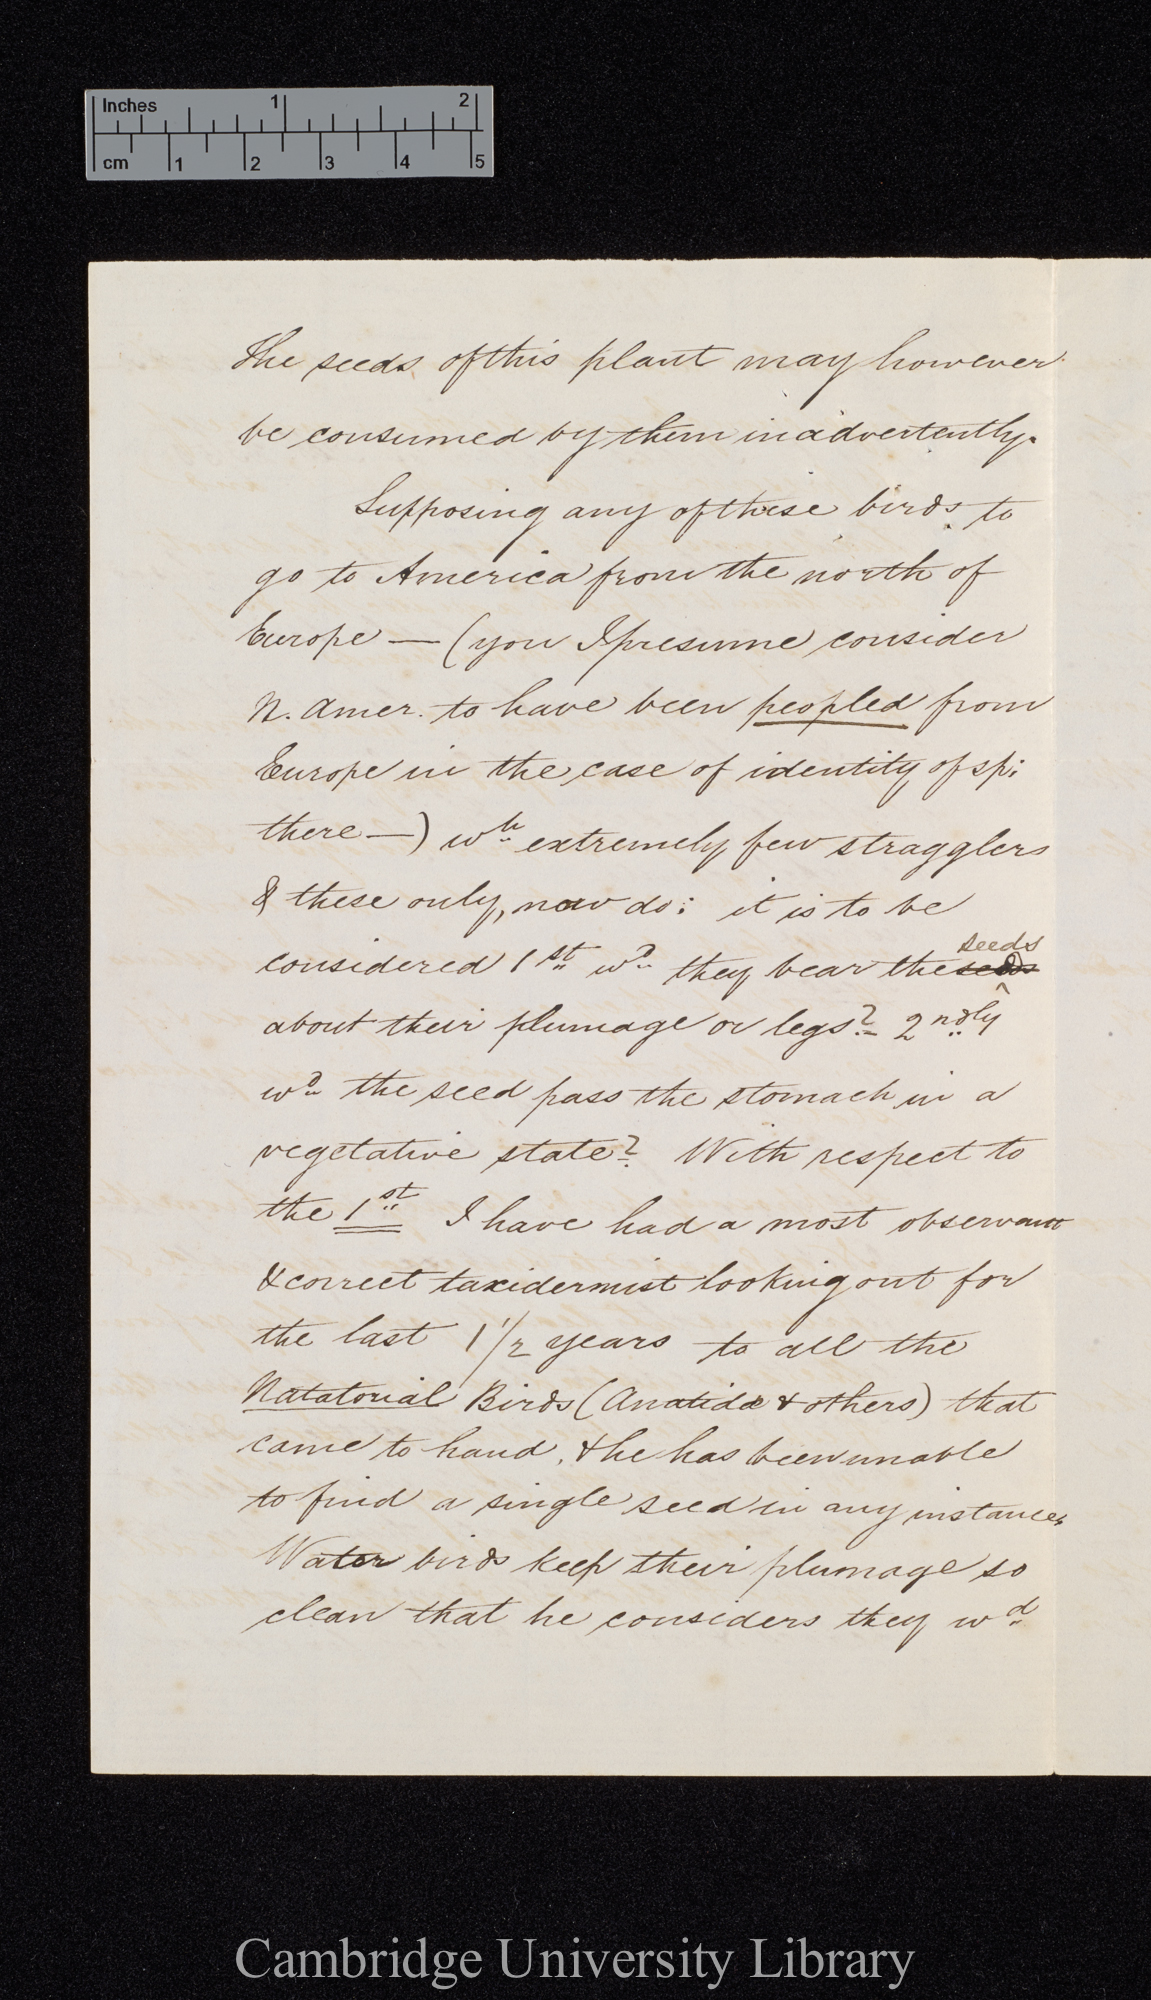 Inches 1 2
cm 1 2 3 4 5
The seeds of this plant may however
be consumed by them inadvertently.
Supposing any of these birds to
go to America from the north of
Europe — (you I presume consider
N. Amer. to have been peopled from
Europe in the case of identity of sp:
there —) wh extremely few stragglers
& these only, now do: it is to be
seeds
considered 1st wd they bear the seeds
about their plumage or legs? 2ndly
wd the seed pass the stomach in a
vegetative state? With respect to
the 1st I have had a most observant
& correct taxidermist looking out for
the last 1 1/2 years to all the
Natatorial Birds (Anatidæ & others) that
came to hand, & he has been unable
to find a single seed in any instance.
Water birds keep their plumage so
clean that he considers they wd
Cambridge University Library